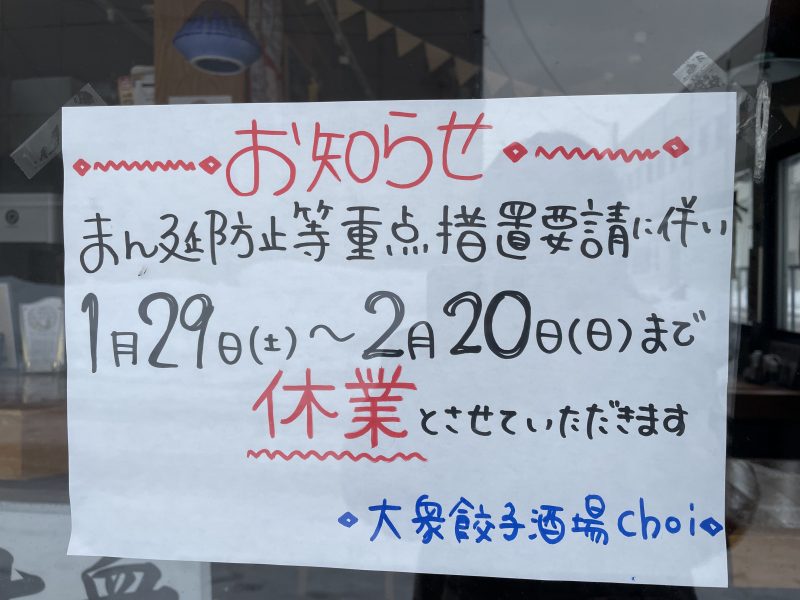 お知らせ
まん延防止等重点措置要請に伴い
1月29日(土)～2月20日(日)まで
休業とさせていただきます
大衆餃子酒場choi
大衆